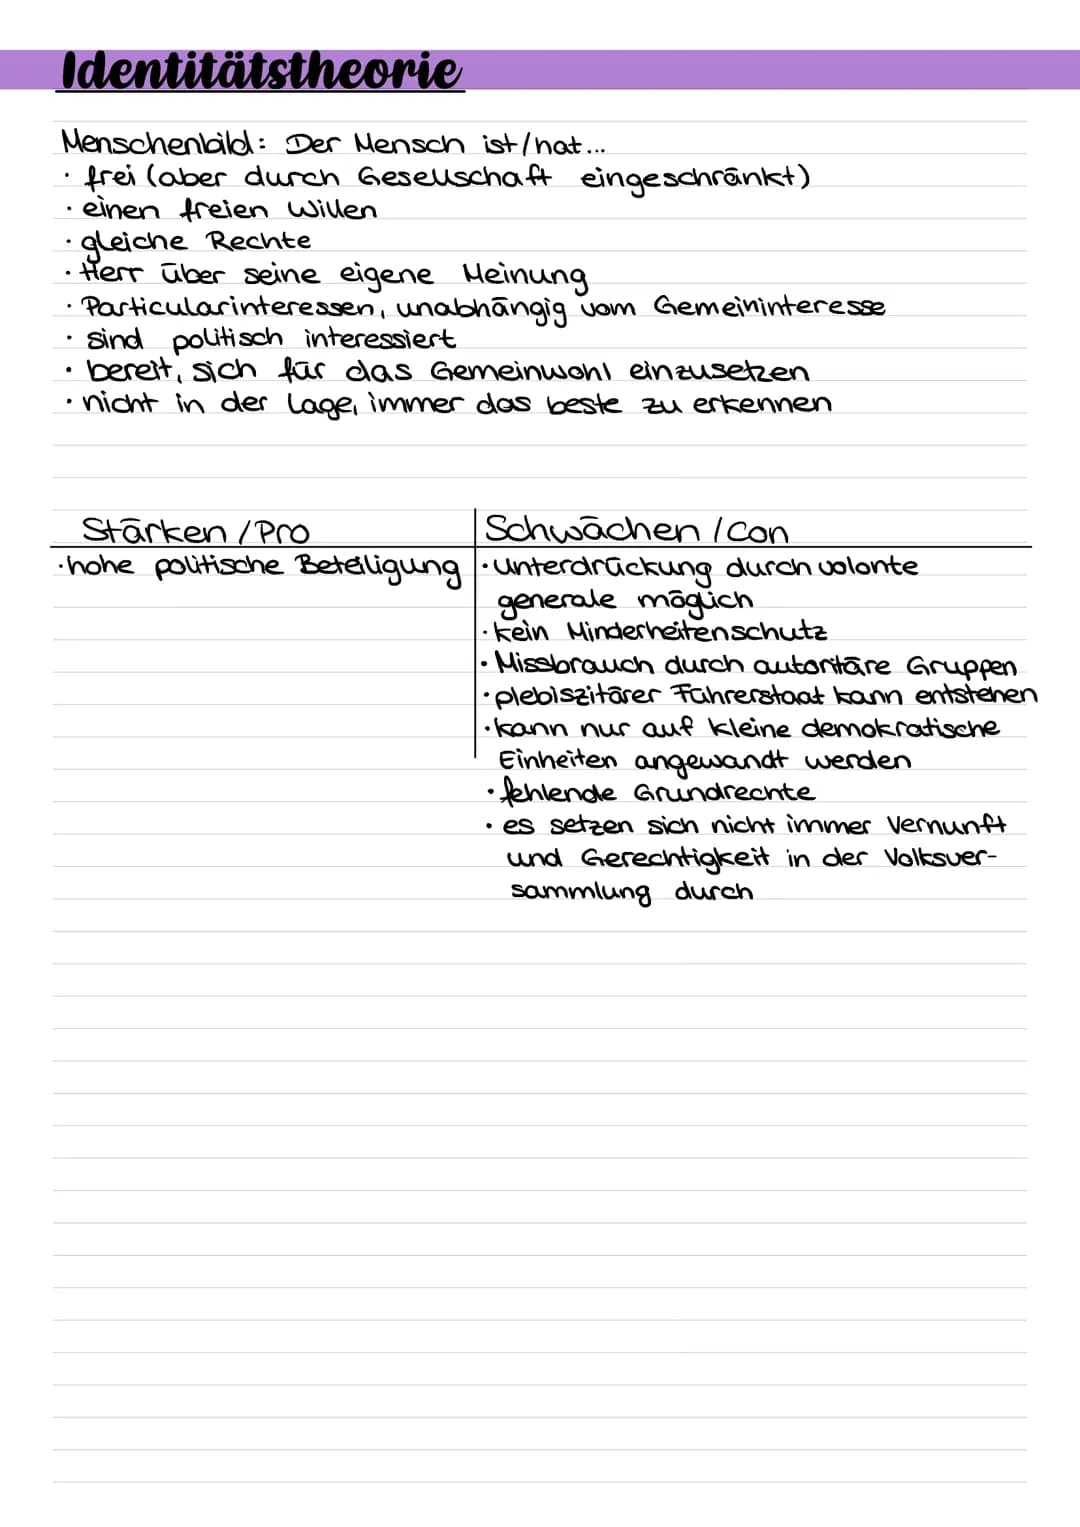 Identitätstheorie
Menschenbild: Der Mensch ist/hat...
· frei (aber durch Gesellschaft eingeschränkt)
· einen freien Willen
· gleiche Rechte
· Herr über seine eigene Meinung
· Particularinteressen, unabhängig vom Gemeininteresse
· sind politisch interessiert
· bereit, sich für das Gemeinwohl einzusetzen
· nicht in der Lage, immer das beste zu erkennen
Stärken / Pro
· hohe politische Beteiligung
Schwächen / Con
· Unterdrückung durch volonte
generale möglich
· kein Minderheitenschutz
· Missbrauch durch autoritäre Gruppen
· plebiszitärer Führerstaat kann entstehen
· kann nur auf kleine demokratische
Einheiten angewandt werden
· fehlende Grundrechte
· es setzen sich nicht immer Vernunft
und Gerechtigkeit in der Volksver-
sammlung durch